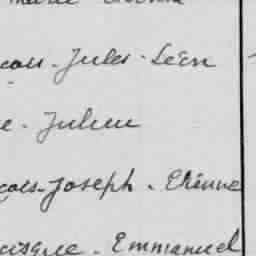 Marie
çois - Jules - Léon
e - Julien
çois - Joseph - Etienne
çoisque - Emmanuel